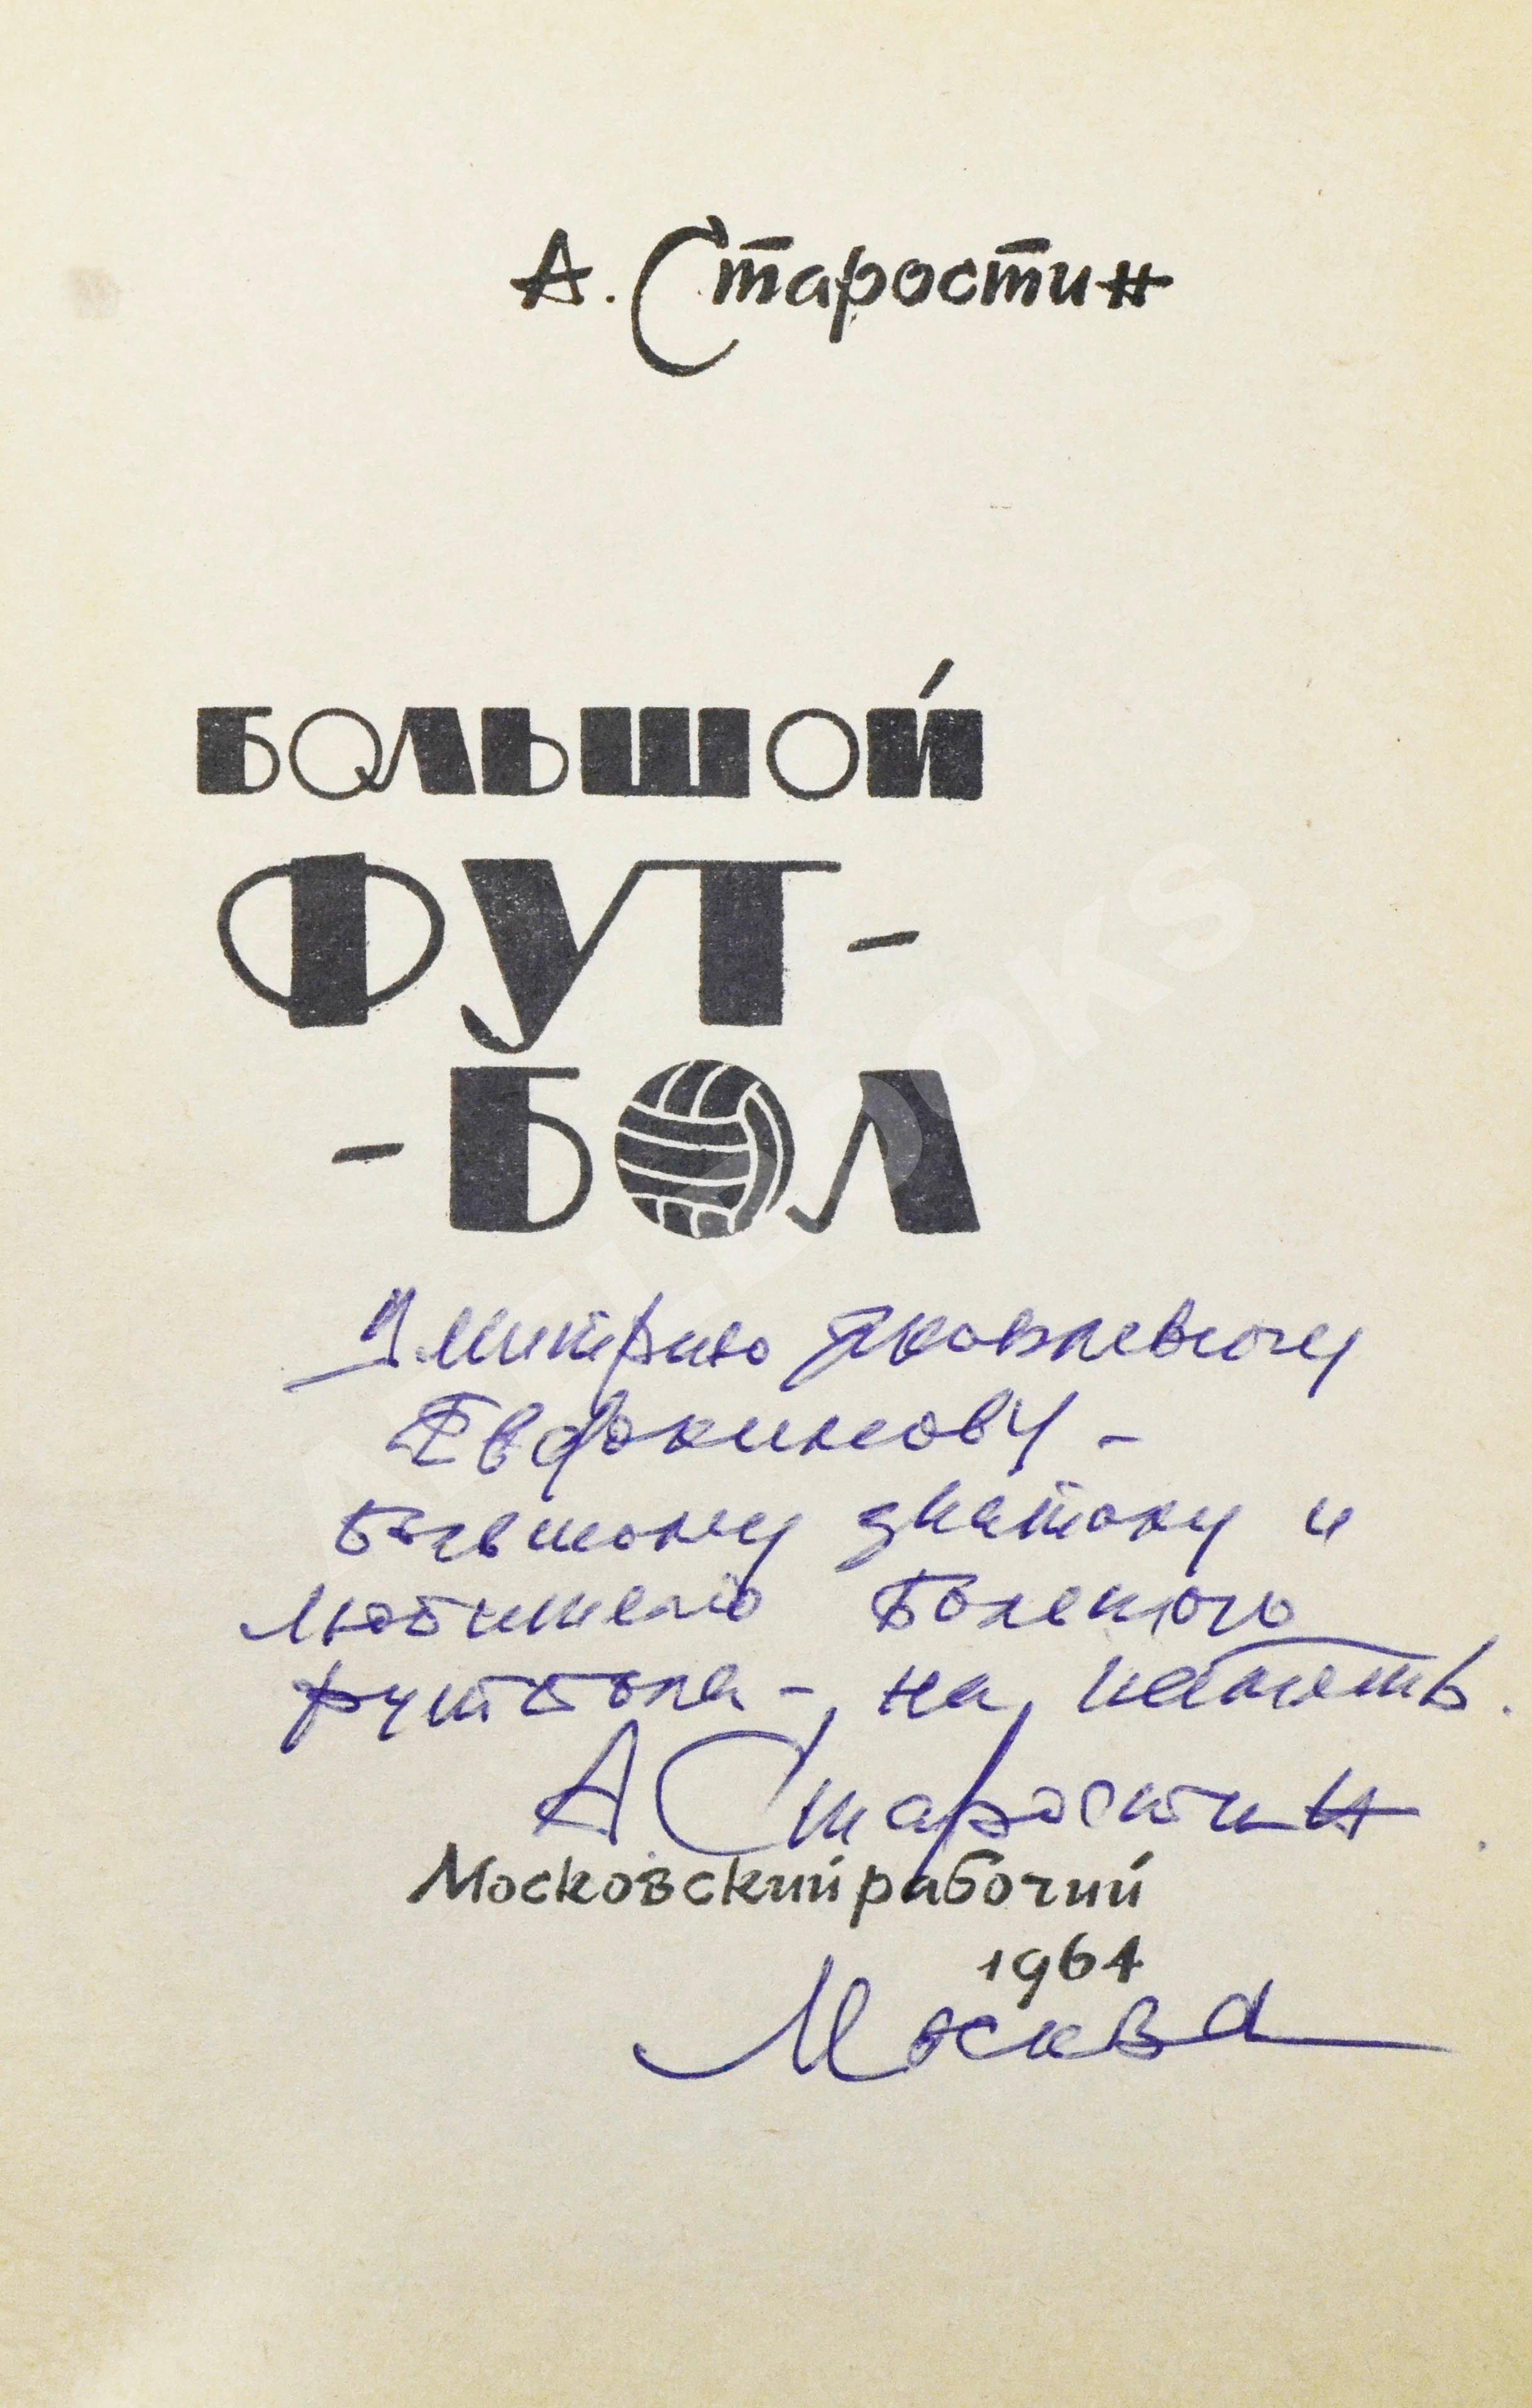 А. Старостин
БОЛЬШОЙ
ФУТ-
-БОЛ
Дмитрию Яковлевичу
Евдокимову -
большому знатоку и
любителю большого
футбола -, на память.
А Старостин
Московский рабочий
1964
Москва